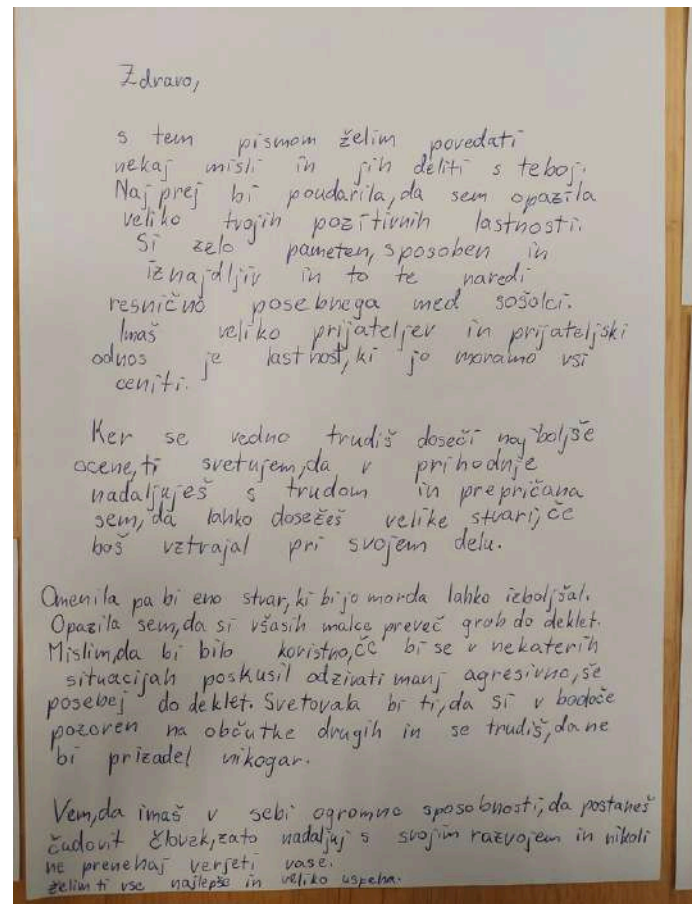 Zdravo,
s tem pismom želim povedati
nekaj misli in jih deliti s teboj.
Naj prej bi poudarila, da sem opazila
veliko tvojih pozitivnih lastnosti.
Si zelo pameten, sposoben in
iznajdljiv in to te naredi
resnično posebnega med sošolci.
Imaš veliko prijateljev in prijateljski
odnos je lastnost, ki jo moramo vsi
ceniti.
Ker se vedno trudiš doseči najboljše
ocene, ti svetujem, da v prihodnje
nadaljuješ s trudom in prepričana
sem, da lahko dosežeš velike stvari, če
boš vztrajal pri svojem delu.
Omenila pa bi eno stvar, ki bi jo morda lahko izboljšal.
Opazila sem, da si včasih malce preveč grob do deklet.
Mislim, da bi bilo koristno, če bi se v nekaterih
situacijah poskusil odzivati manj agresivno, še
posebej do deklet. Svetovala bi ti, da si v bodoče
pozoren na občutke drugih in se trudiš, da ne
bi prizadel nikogar.
Vem, da imaš v sebi ogromno sposobnosti, da postaneš
čudovit človek, zato nadaljuj s svojim razvojem in nikoli
ne prenehaj verjeti vase.
želim ti vse najlepše in veliko uspeha.